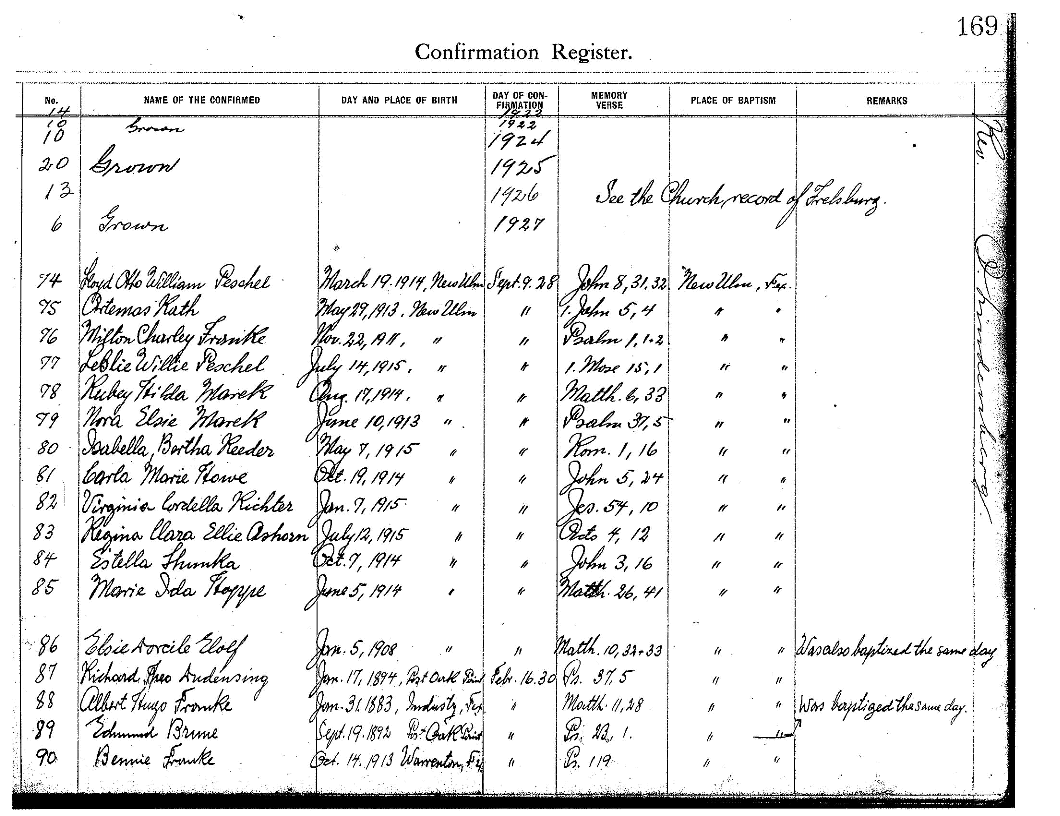 169
Confirmation Register.
No. NAME OF THE CONFIRMED DAY AND PLACE OF BIRTH DAY OF CONFIRMATION MEMORY VERSE PLACE OF BAPTISM REMARKS
14 1922
10 Grown 1922
10 1924
20 Grown 1925
13 1926 See the Church record of Frelsburg.
6 Grown 1927
74 Floyd Otto William Peschel March 19. 1914, New Ulm Sept. 9. 28 John 8, 31, 32 New Ulm, Tex.
75 Artemas Rath May 29, 1913. New Ulm " 1. John 5, 4 " "
76 Milton Charley Franke Nov. 22, 1911, " " Psalm 1, 1-2 " "
77 Leslie Willie Peschel July 14, 1915. " " 1. Mose 15, 1 " "
78 Rubey Hilda Marek Aug. 17, 1914. " " Matth. 6, 33 " "
79 Nora Elsie Marek June 10, 1913 " " Psalm 37, 5 " "
80 Isabella, Bertha Reeder May 7, 1915 " " Rom. 1, 16 " "
81 Carla Marie Howe Oct. 19, 1914 " " John 5, 24 " "
82 Virginia Cordella Richter Jan. 7, 1915 " " Jes. 54, 10 " "
83 Regina Clara Ellie Ashorn July 12, 1915 " " Acts 4, 12 " "
84 Estella Shumka Oct. 7, 1914 " " John 3, 16 " "
85 Marie Ida Hoppe June 5, 1914 " " Matth. 26, 41 " "
86 Elsie Dorcile Elolf Jan. 5, 1908 " " Matth. 10, 32+33 " " Was also baptized the same day
87 Richard Theo Dudensing Jan. 17, 1894, Post Oak Point Febr. 16. 30 Ps. 37. 5 " "
88 Albert Hugo Franke Jan. 31. 1883, Industry, Tex. " Matth 11, 28 " " Was baptized the same day.
89 Edmund Brune Sept. 19. 1892 Post Oak Point " Ps. 23, 1. " "
90 Bennie Franke Oct. 14. 1913 Warrenton, Tex. " Ps. 119 " "
Rev.